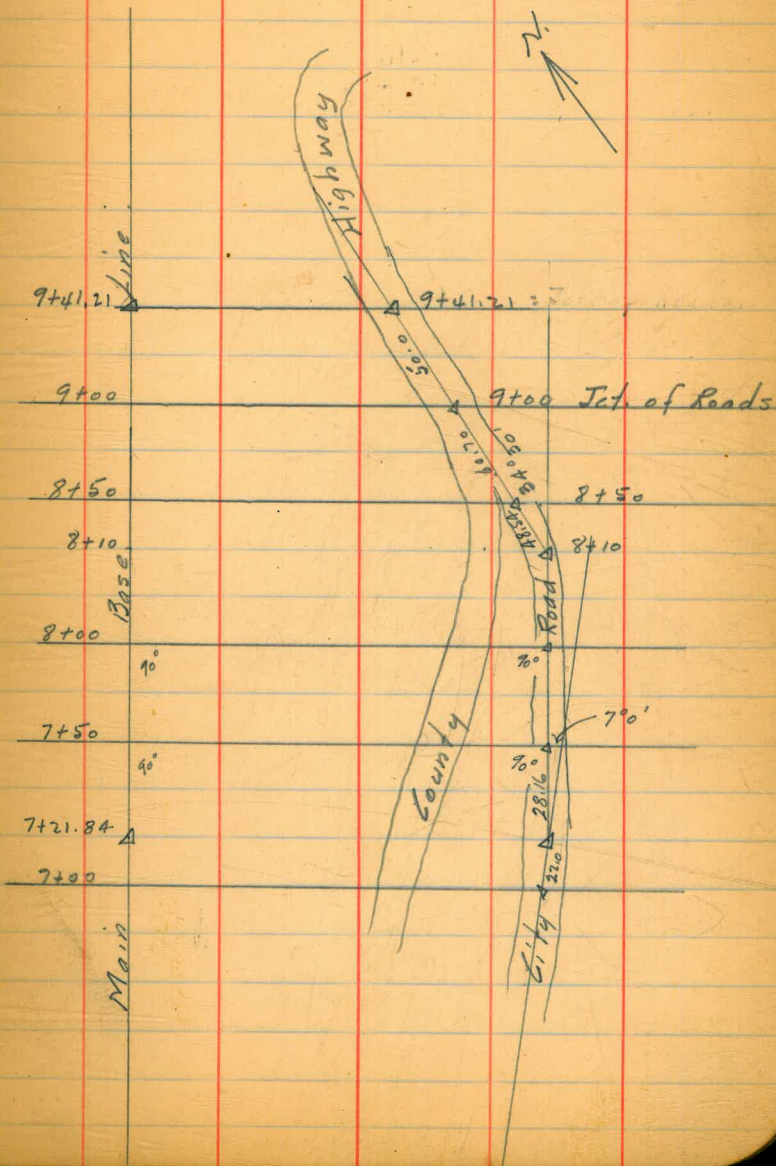 N
Highway
Line
9+41.21
9+41.21 =
50.0
9+00
9+00 Jct. of Roads
60.70
34°30'
8+50
8+50
48.54
8+10
8+10
Base
Road
8+00
90°
90°
7+50
7°0'
90°
90°
County
28.16
7+21.84
22.0
7+00
City
Main